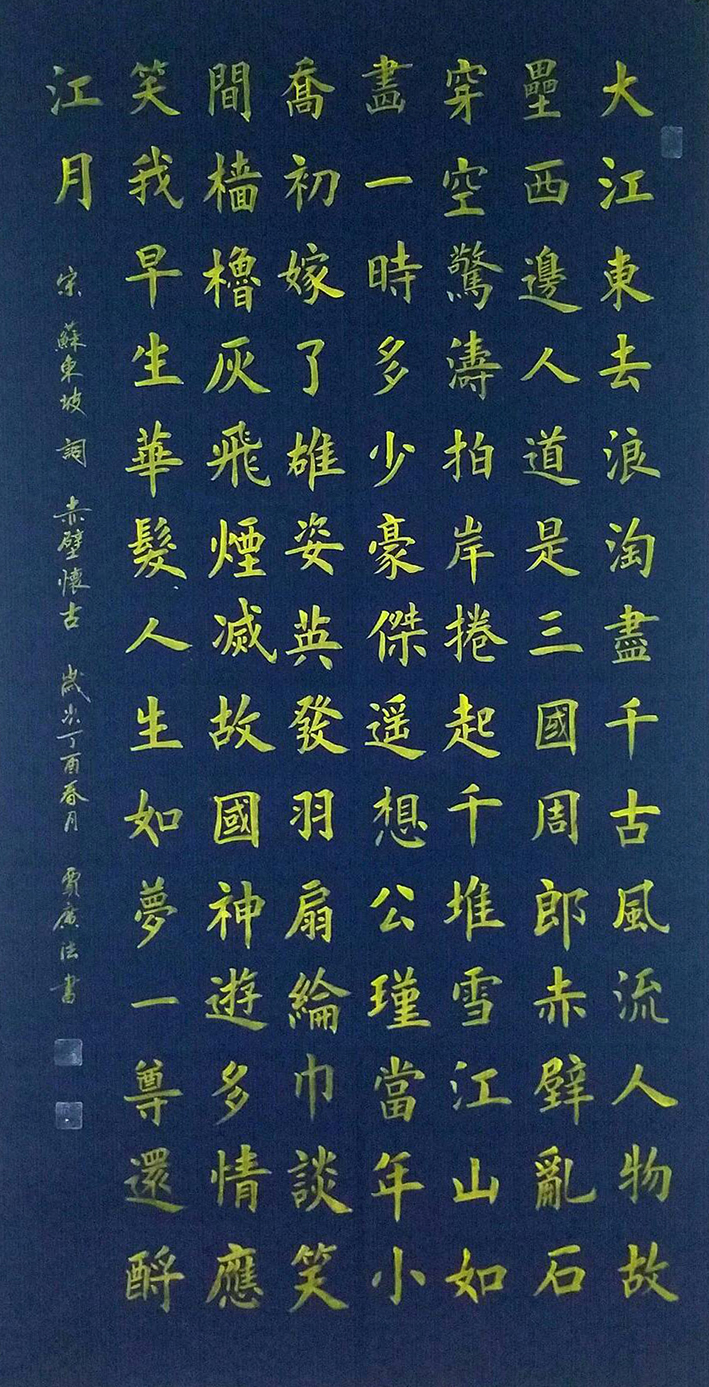 大江東去浪淘盡千古風流人物故
壘西邊人道是三國周郎赤壁亂石
穿空驚濤拍岸捲起千堆雪江山如
畫一時多少豪傑遥想公瑾當年小
喬初嫁了雄姿英發羽扇綸巾談笑
間檣櫓灰飛煙滅故國神遊多情應
笑我早生華髮人生如夢一尊還酹
江月 宋 蘇東坡 詞 赤壁懷古 歲次丁酉春月 賈廣法書